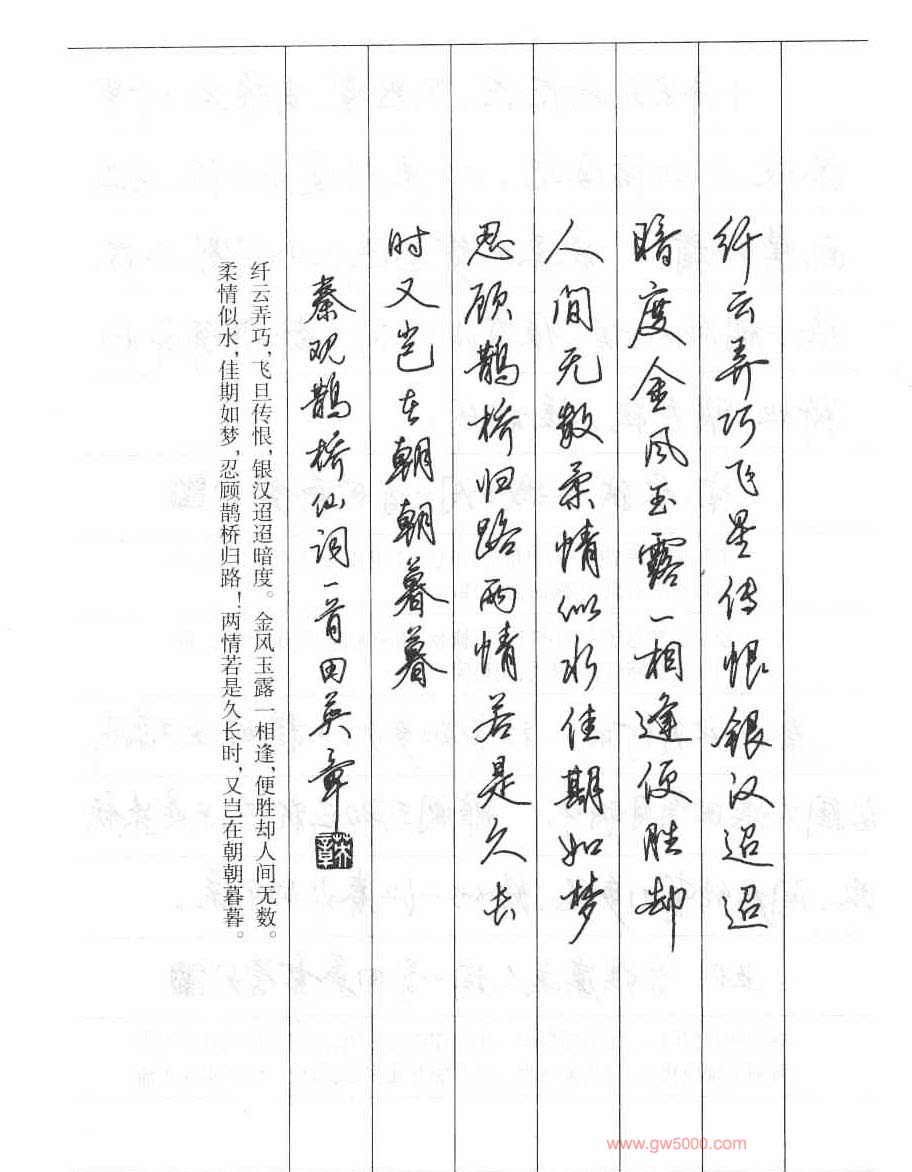 纤云弄巧飞星传恨银汉迢迢
暗度金风玉露一相逢便胜却
人间无数柔情似水佳期如梦
忍顾鹊桥归路两情若是久长
时又岂在朝朝暮暮
秦观鹊桥仙词一首田英章
英章
纤云弄巧，飞旦传恨，银汉迢迢暗度。金风玉露一相逢，便胜却人间无数。
柔情似水，佳期如梦，忍顾鹊桥归路！两情若是久长时，又岂在朝朝暮暮。
www.gw5000.com